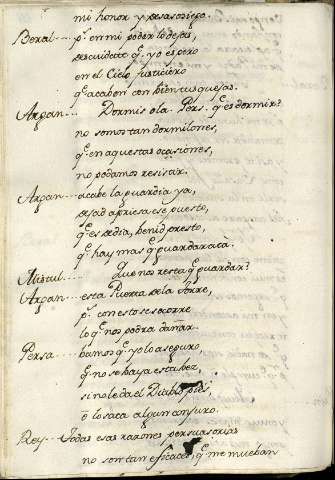 mi honor y
Beral.... pr. en mi poder lo dejas,
descuidate q. yo espero
en el Cielo justiciero
q. acaben con bien tus quejas.
Arpan... Dormis ola? Pers. q. es dormir?
no somos tan dormilones,
q. en aquestas ocasiones,
no podamos resistir.
Arpan... acabe la guardia ya,
dejad apriesa ese puesto,
q. es de dia, benid presto,
q. hay mas q. guardar acà.
Que nos resta q. guardar?
Arpan.... esta Puerta de la Torre,
pr. con esto se socorre
lo q. nos podra dañar.
Persa..... bamos q. yo lo aseguro,
q. no se baya esta bez,
si no le da el Diablo pies,
ò lo saca algun conjuro.
Rey... Todas esas razones persuasorias
no son tan eficaces, q. me mueban